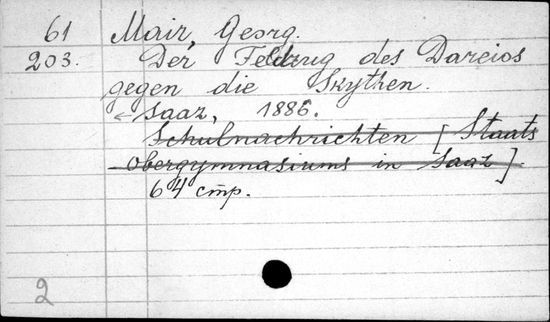 61 Mair, Georg.
203. Der Feldzug des Dareios
gegen die Skythen.
← Saaz, 1886.
Schulnachrichten [Staats
obergymnasiums in Saaz]
64 cmp.
2